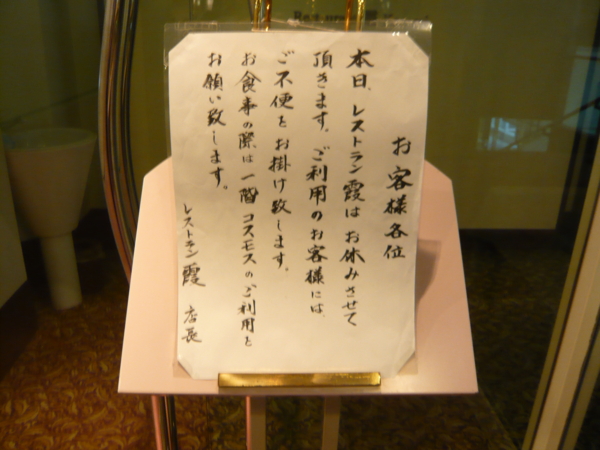 お客様各位
本日、レストラン霞はお休みさせて
頂きます。ご利用のお客様には、
ご不便をお掛け致します。
お食事の際は一階コスモスのご利用を
お願い致します。
レストラン霞 店長